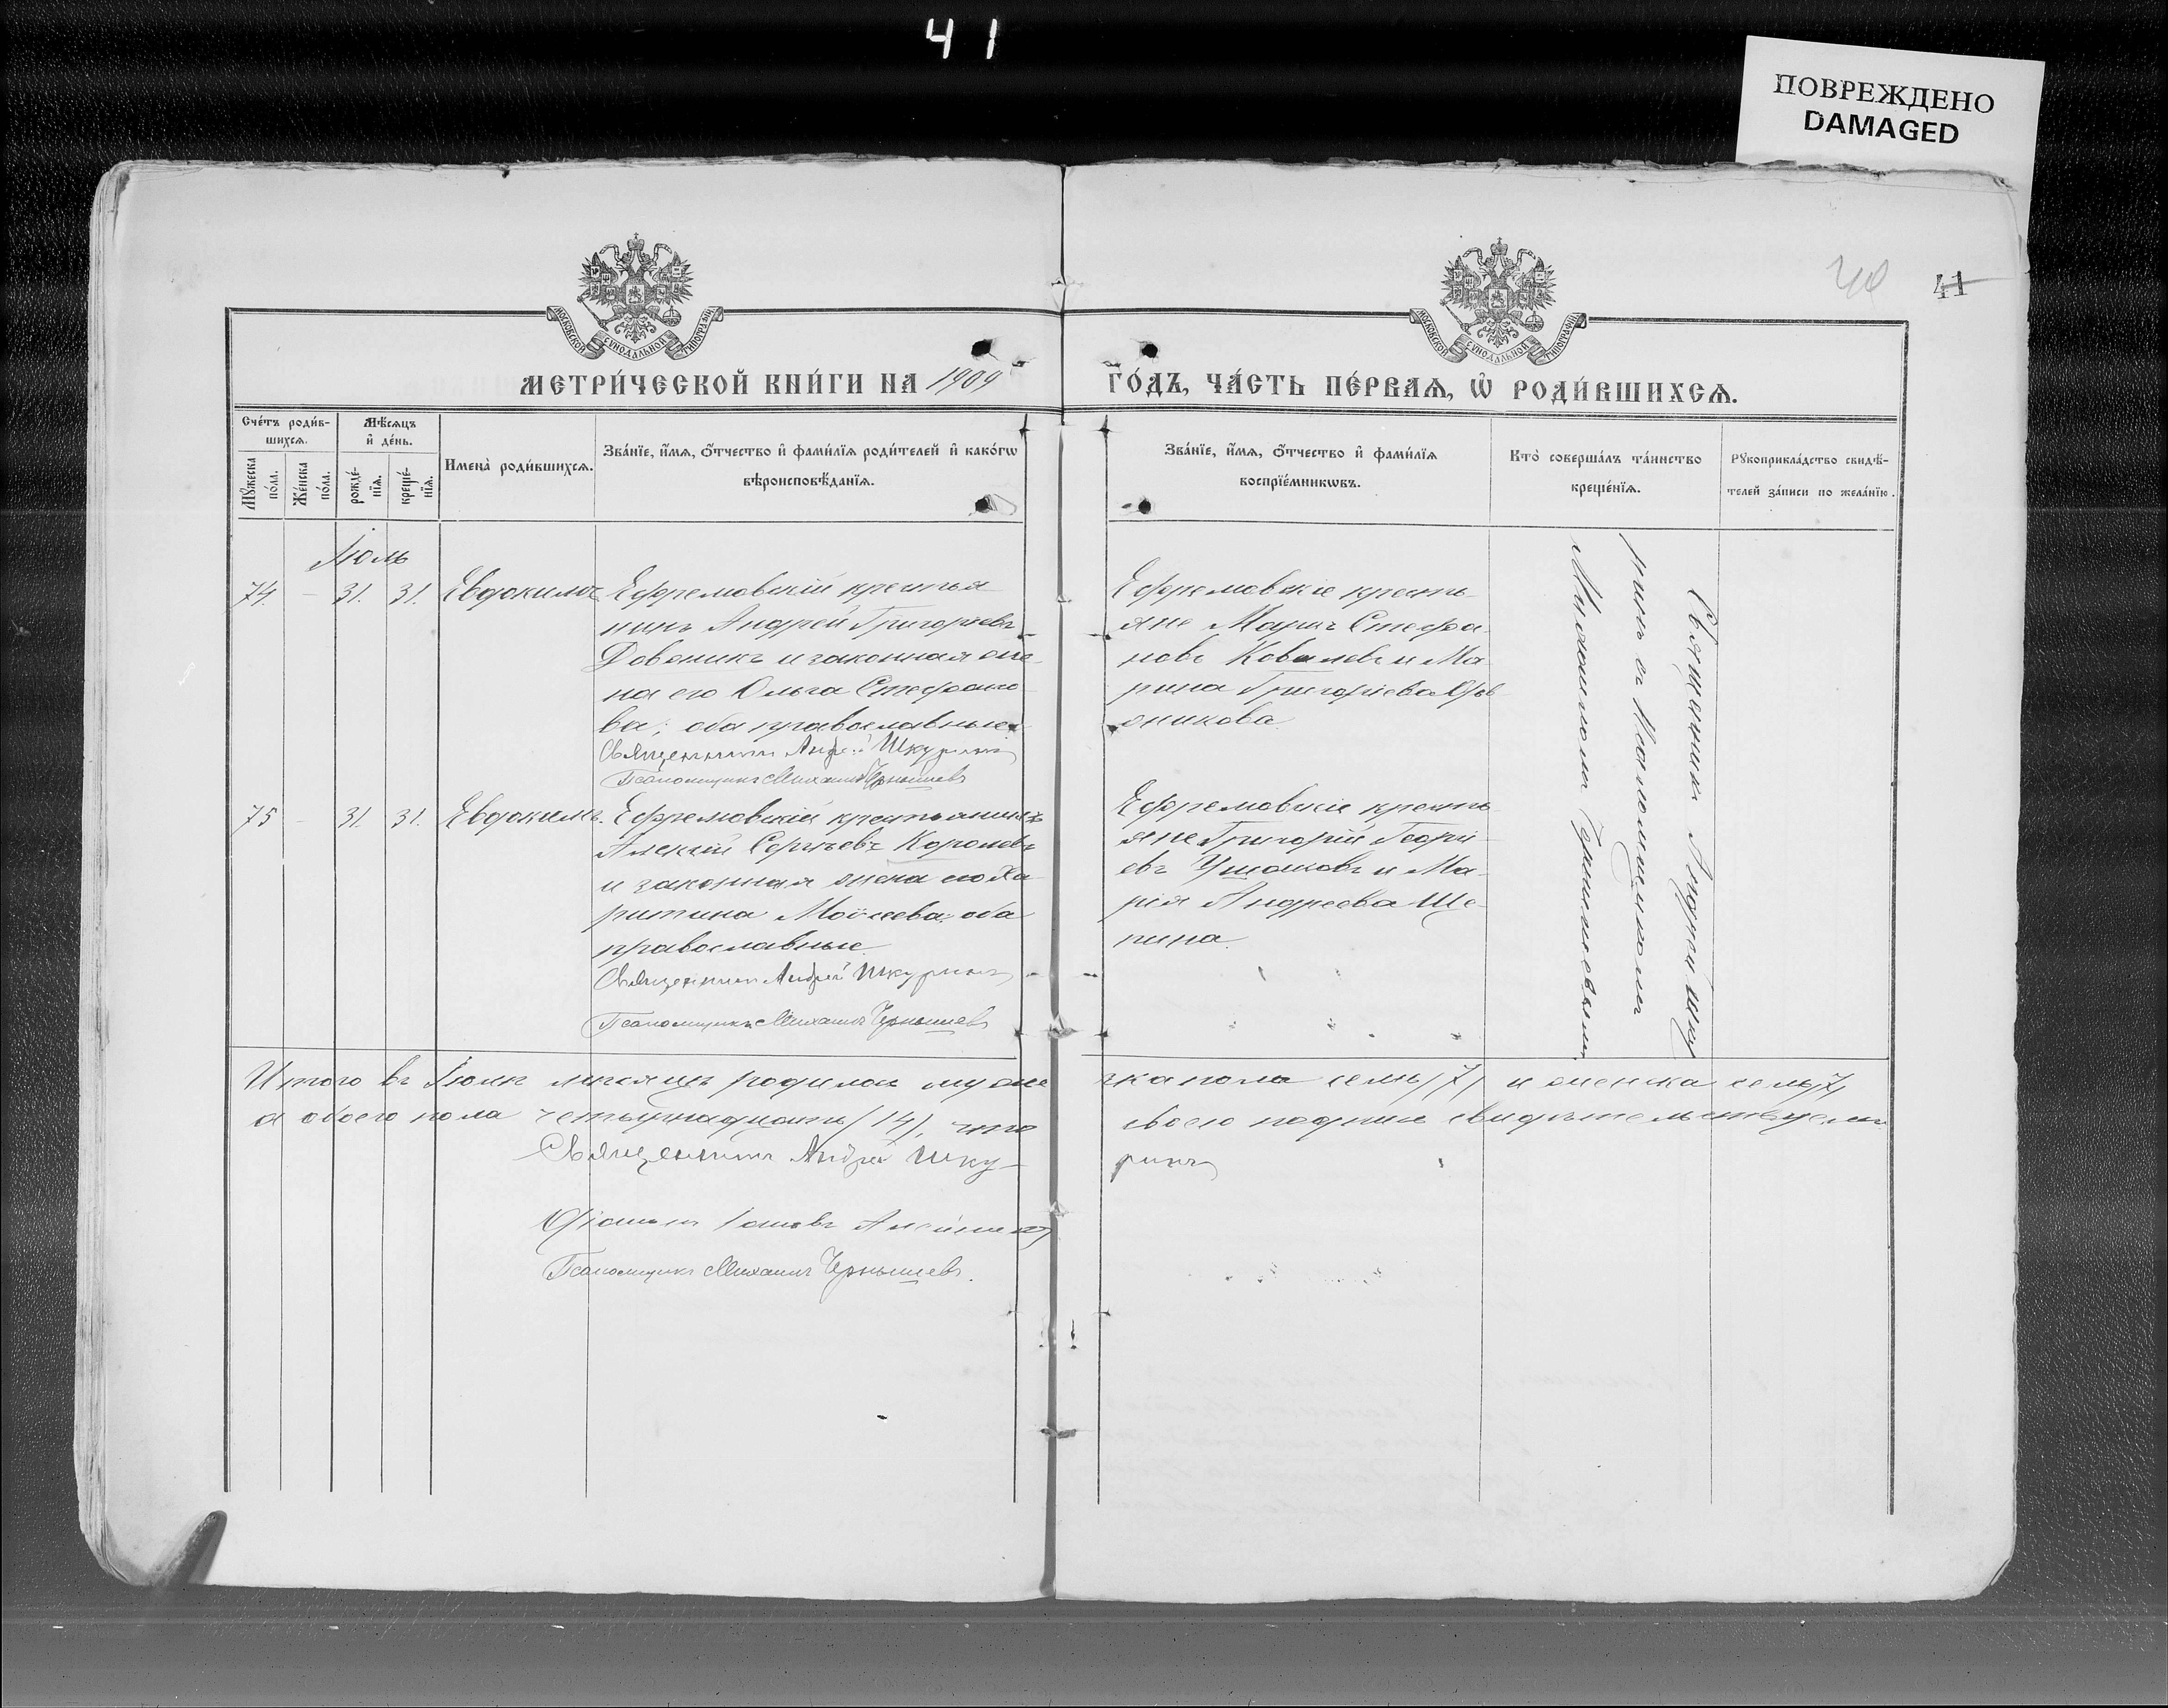 41
ПОВРЕЖДЕНО
DAMAGED
40 41
МОСКОВСКОЙ СѴНОДАЛЬНОЙ ТИПОГРАФІИ
МОСКОВСКОЙ СѴНОДАЛЬНОЙ ТИПОГРАФІИ
МЕТРИ́ЧЕСКОЙ КНИ́ГИ НА 1909
ГО́ДЪ, ЧА́СТЬ ПЕ́РВАѦ, Ѡ҆ РОДИ́ВШИХСѦ.
Сче́тъ роди́в-
шихсѧ.
Мꙋ́жеска
по́ла.
Же́нска
по́ла.
Мѣ́сѧцъ
и҆ де́нь.
рожде́-
нїѧ.
креще́-
нїѧ.
Имена̀ роди́вшихсѧ.
Зва́нїе, и҆́мѧ, ѻ҆́тчество и҆ фами́лїѧ роди́телей и҆ како́гѡ
вѣроисповѣ́данїѧ.
Зва́нїе, и҆́мѧ, ѻ҆́тчество и҆ фами́лїѧ
воспрїе́мникѡвъ.
Кто̀ соверша́лъ та́инство
креще́нїѧ.
Рꙋкоприкла́дство свидѣ́-
телей за́писи по жела́нїю.
Іюль
74. - 31. 31. Евдокимъ
Ефремовскій крестья
нинъ Андрей Григорьевъ
Довоникъ и законная же-
на его Ольга Стефано
ва; оба православные
Священникъ Андрей Шкуринъ
Псаломщикъ Михаилъ Чернышевъ
Ефремовскіе кресть-
яне Стефа-
новъ Ковалевъ и Ма
рина Григорьева Дов
оникова.
75 - 31. 31. Евдокимъ.
Ефремовскій крестьянинъ
Алексѣй Сергѣевъ Королевъ
и законная жена его Ха
ритина Моисеева; оба
православные
Священникъ Андрей Шкуринъ
Псаломщикъ Михаилъ Чернышевъ
Ефремовскіе кресть
яне Григорій Георгі-
евъ Ушаковъ и Ма-
рія Андреева Ще-
пина.
Священникъ Андрей Шку
ринъ съ Псаломщикомъ
Михаиломъ Чернышевымъ.
Итого въ Іюлѣ мѣсяцѣ родилось муже
ска пола семь /7/ и женска семь /7/
а обоего пола четырнадцать /14/, что
своею подписью свидѣтельствуемъ
Священникъ Андрей Шку-
ринъ
Діаконъ Іаковъ
Псаломщикъ Михаилъ Чернышевъ.